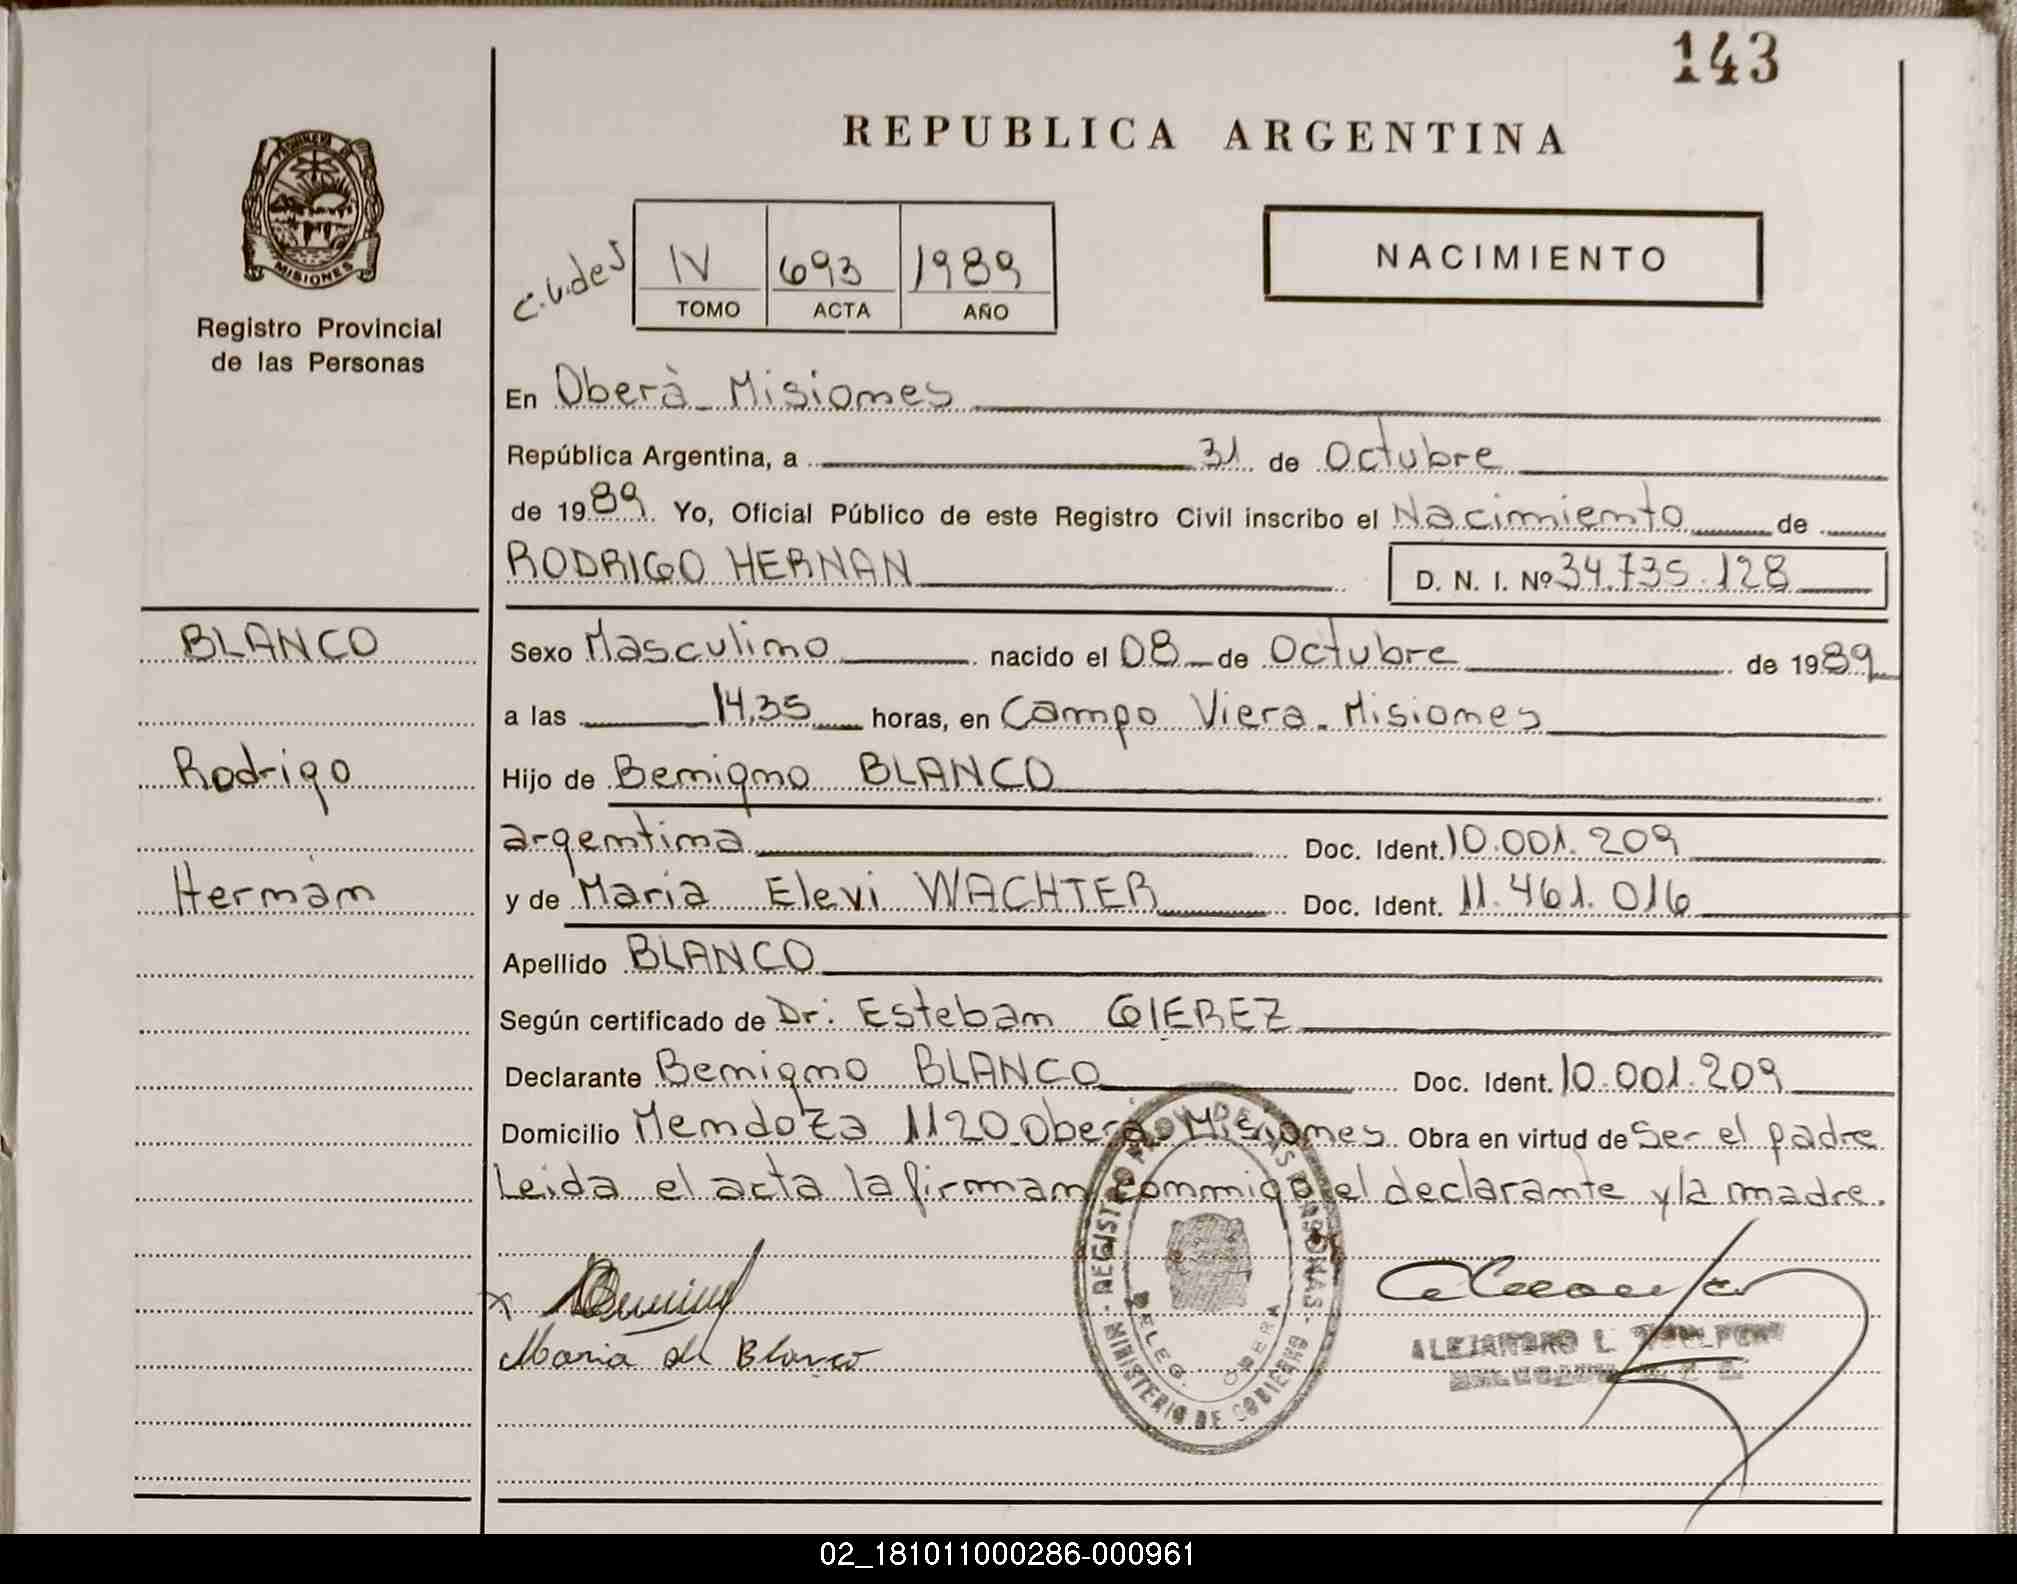 143
REPUBLICA ARGENTINA
PROVINCIA DE
MISIONES
Registro Provincial
de las Personas
IV 693 1989
TOMO ACTA AÑO
NACIMIENTO
En Oberà - Misiones
República Argentina, a 31 de Octubre
de 1989. Yo, Oficial Público de este Registro Civil inscribo el Nacimiento de
RODRIGO HERNAN D. N. I. Nº 34.735.128
BLANCO
Rodrigo
Hernàn
Sexo Masculino nacido el 08 de Octubre de 1989
a las 14,35 horas, en Campo Viera - Misiones
Hijo de Benigno BLANCO
argentina Doc. Ident. 10.001.209
y de Maria Elevi WACHTER Doc. Ident. 11.461.016
Apellido BLANCO
Según certificado de Dr: Esteban GIEREZ
Declarante Benigno BLANCO Doc. Ident. 10.001.209
Domicilio Mendoza 1120 Oberà Misiones Obra en virtud de Ser el padre
Leida el acta la firman conmigo el declarante y la madre.
REGISTRO PROV. DE LAS PERSONAS
DELEG. OBERA
MINISTERIO DE GOBIERNO
x
Maria de Blanco
ALEJANDRO L.
02_181011000286-000961